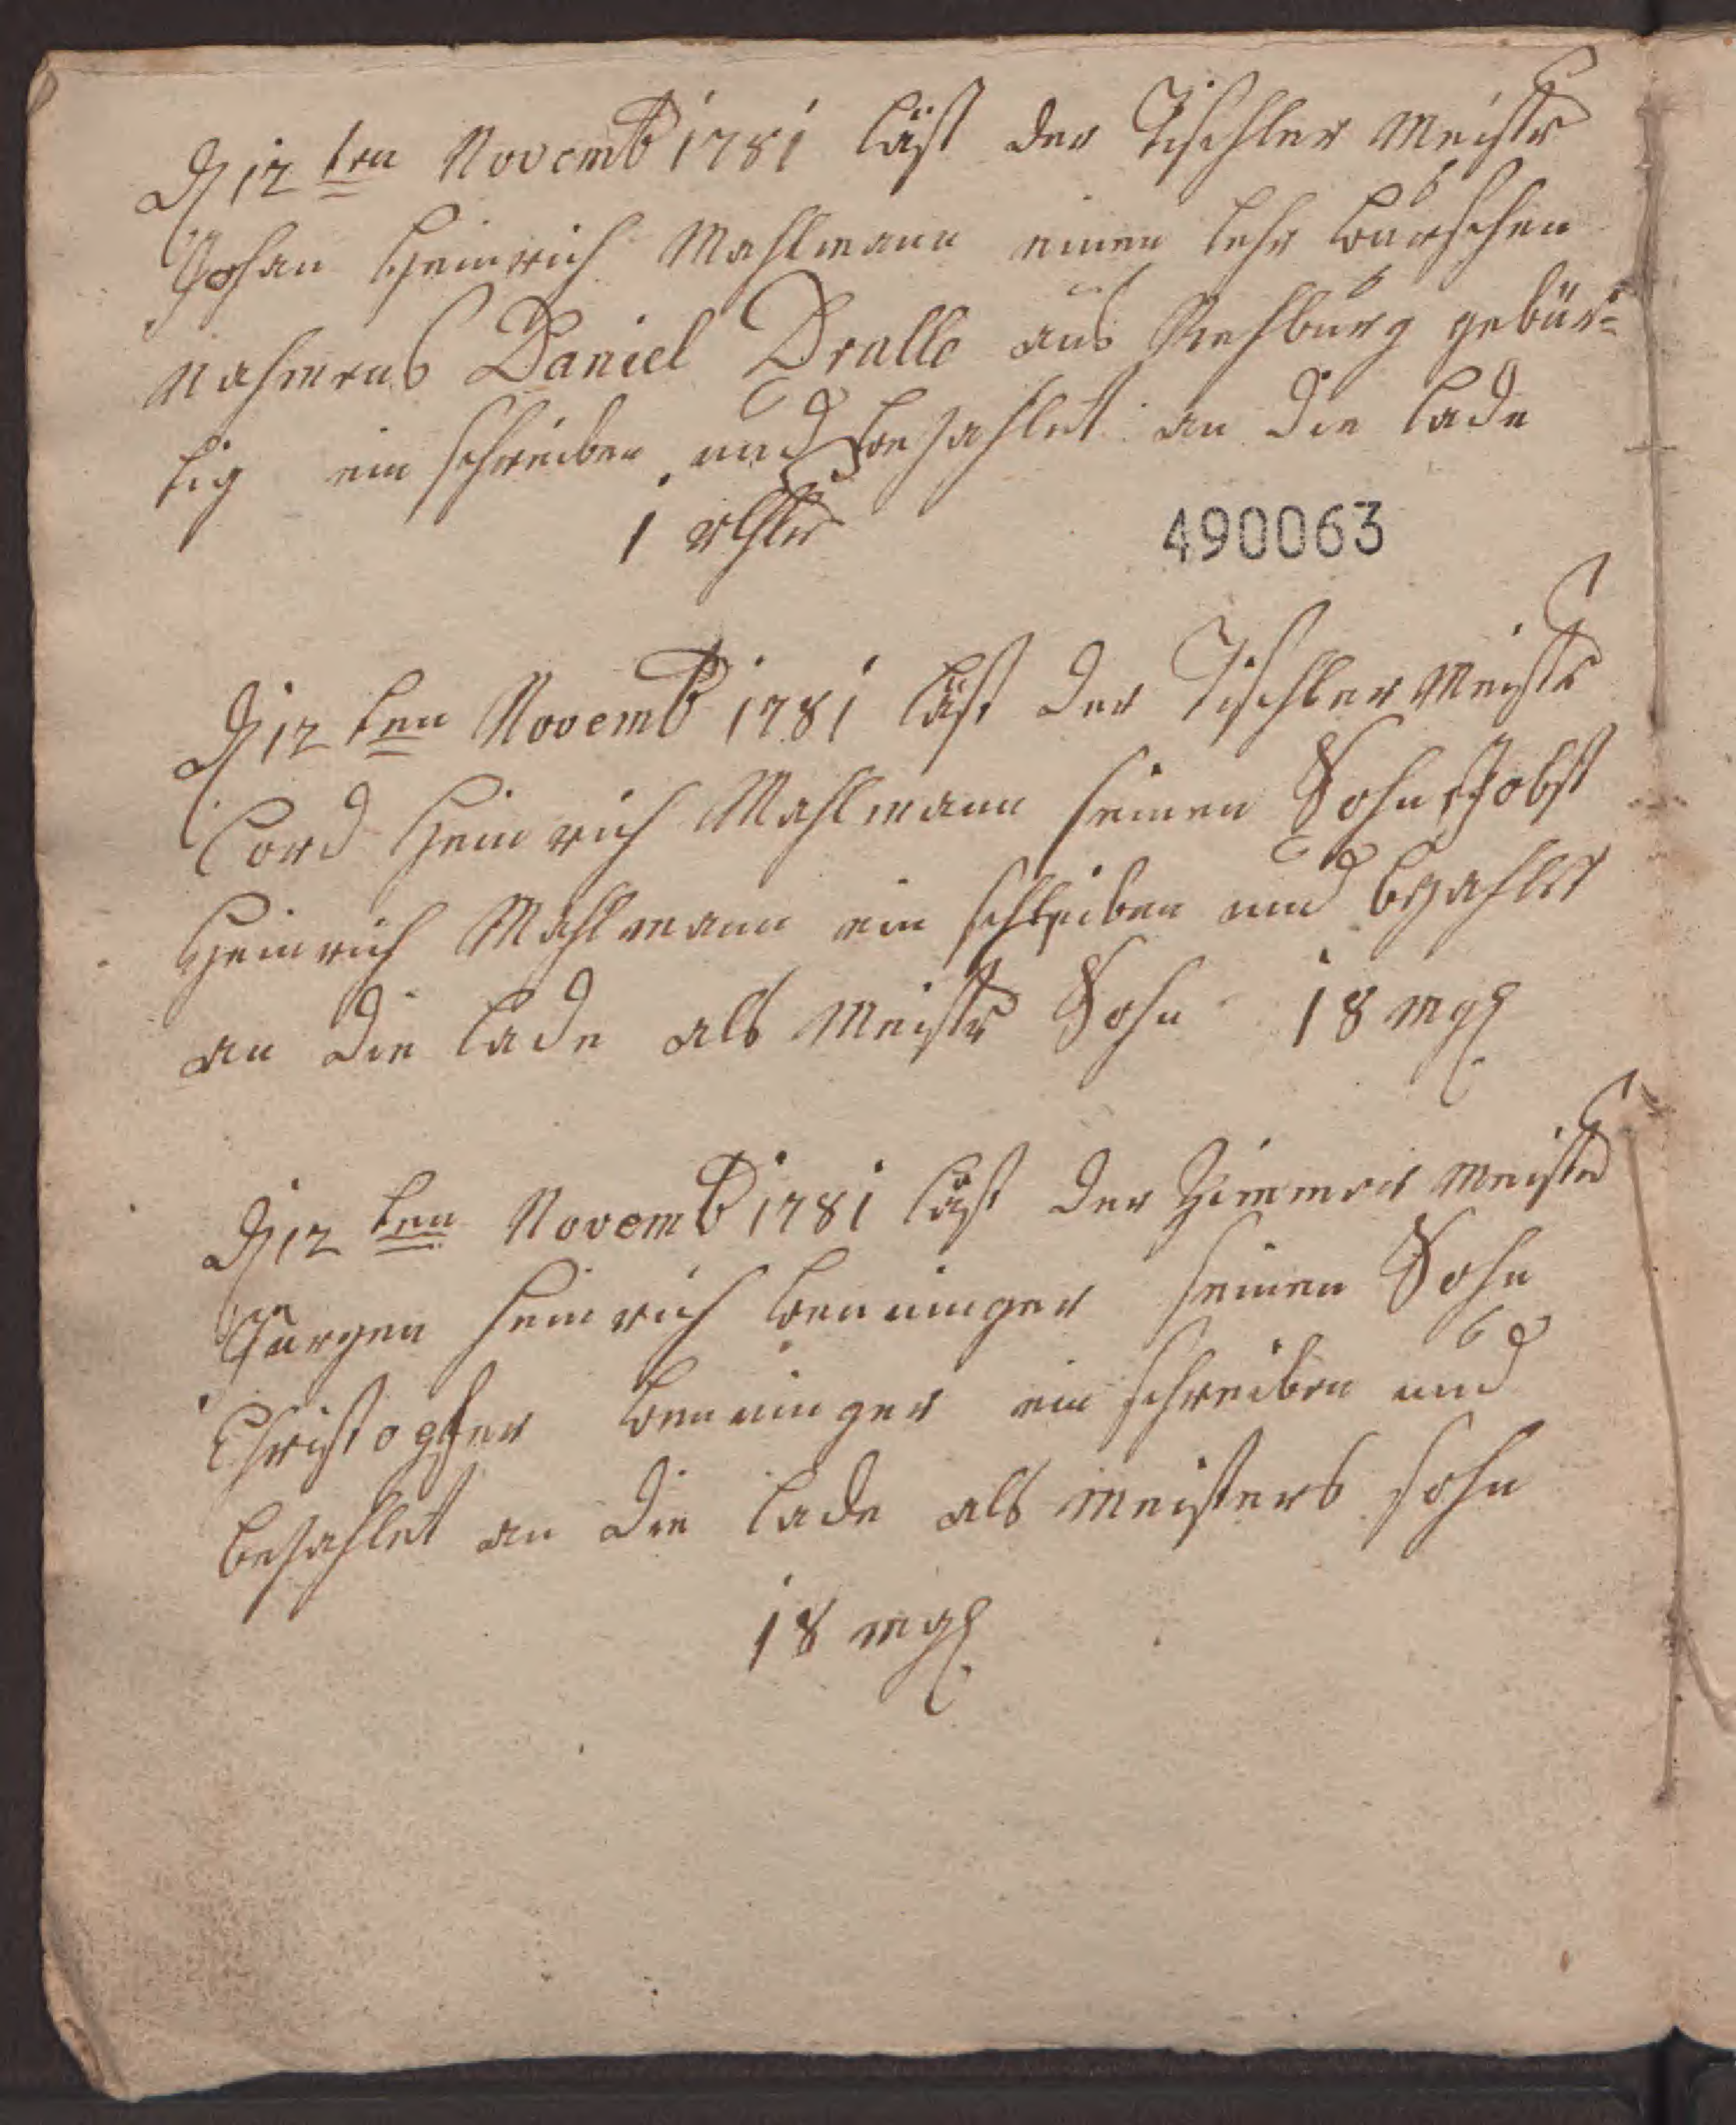 D 12ten Novemb 1781 läst der Tischler Meistr
Johan Heinrich Mahlmann einen lehr burschen
nahmens Daniel Dralle aus Rehburg gebür=
tig ein schreiben und bezahlet an die lade
1 rthlr
490063
D 12ten Novemb 1781 läst der Tischler Meistr
Cord Heinrich Mahlmann seinen Sohn Jobst
Heinrich Mahlmann ein schreiben und bezahlet
an die lade als Meistr Sohn 18 mgl
D 12ten Novemb 1781 läst der Zimmer Meistr
Jürgen Heinrich Benninger seinen Sohn
Christopher Benninger ein schreiben und
bezahlet an die lade als meisters sohn
18 mgl